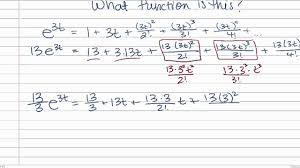 What function is this?
e^{3t} = 1 + 3t + (3t)²/2! + (3t)³/3! + (3t)⁴/4! + ...
13e^{3t} = 13 + 3·13t + 13(3t)²/2! + 13(3t)³/3! + ...
13·3²t²/2! 13·3³·t³/3!
13/3 e^{3t} = 13/3 + 13t + 13·3/2! t² + 13(3)²